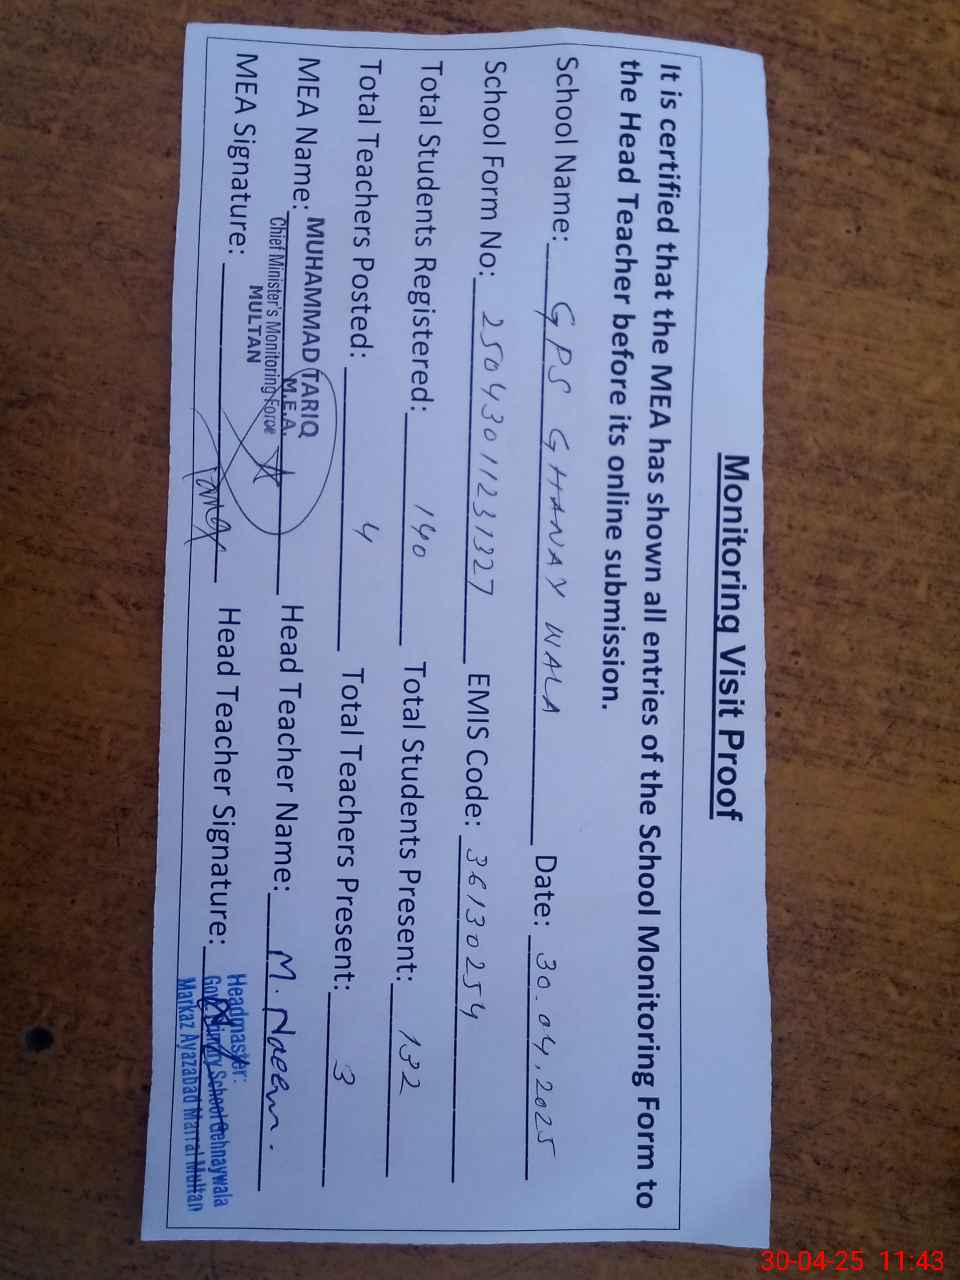 Monitoring Visit Proof
It is certified that the MEA has shown all entries of the School Monitoring Form to
the Head Teacher before its online submission.
School Name: GPS GHANAY WALA Date: 30.04.2025
School Form No: 25043011231327 EMIS Code: 36130254
Total Students Registered: 140 Total Students Present: 132
Total Teachers Posted: 4 Total Teachers Present: 3
MEA Name: MUHAMMAD TARIQ Head Teacher Name: M. Naeem.
M.E.A.
Chief Minister's Monitoring Force
MULTAN
MEA Signature: Tariq Head Teacher Signature:
Headmaster:
Govt. Primary School Gehnaywala
Markaz Ayazabad Marral Multan
30-04-25 11:43